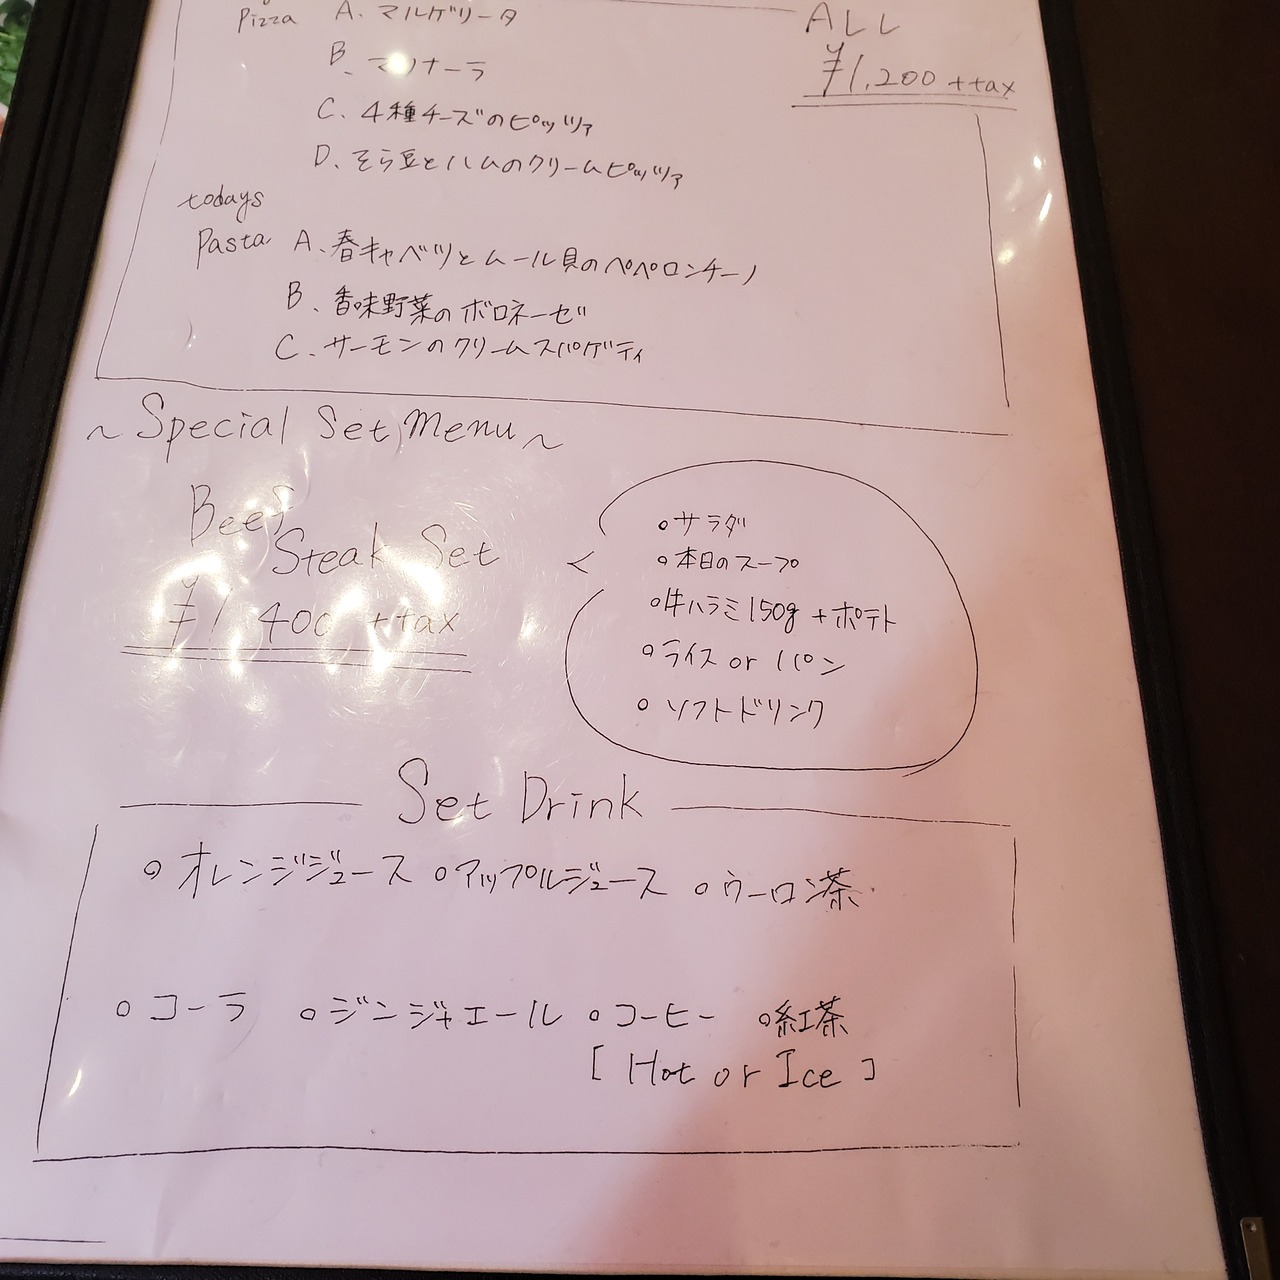 Pizza A. マルゲリータ
ALL
B. マリナーラ
¥1,200 +tax
C. 4種チーズのピッツァ
D. そら豆とハムのクリームピッツァ
todays
Pasta A. 春キャベツとムール貝のペペロンチーノ
B. 香味野菜のボロネーゼ
C. サーモンのクリームスパゲティ
~ Special Set Menu ~
Beef
Steak Set
¥1,400 +tax
○サラダ
○本日のスープ
○牛ハラミ150g+ポテト
○ライス or パン
○ソフトドリンク
Set Drink
○オレンジジュース ○アップルジュース ○ウーロン茶
○コーラ ○ジンジャエール ○コーヒー ○紅茶
[ Hot or Ice ]